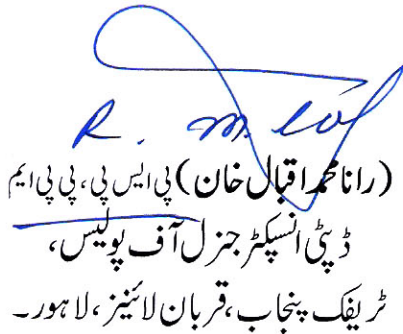 (رانا محمد اقبال خان) پی ایس پی، پی پی ایم
ڈپٹی انسپکٹر جنرل آف پولیس،
ٹریفک پنجاب، قربان لائنیز، لاہور۔